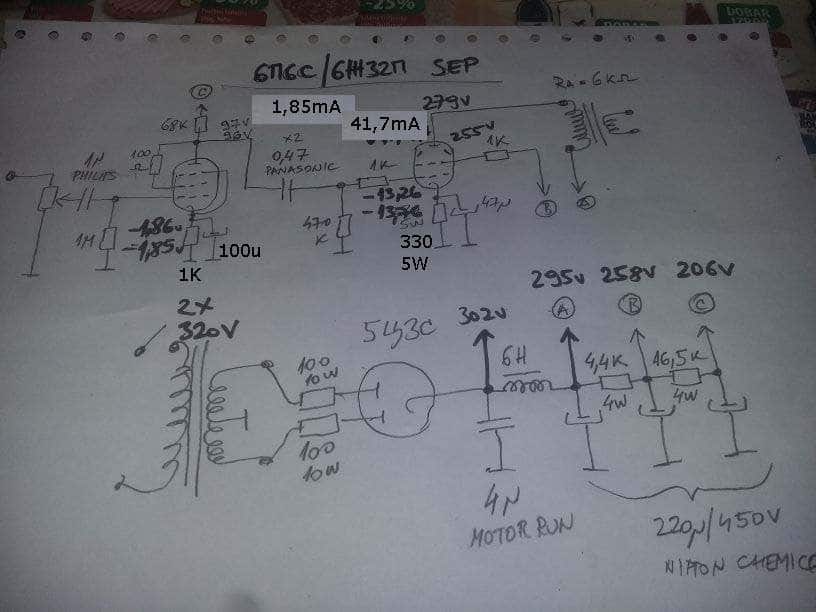 -25%
DOBAR
DOBAR
6П6С/6Ж32П SEP
Ra = 6KΩ
C
1,85mA
279V
41,7mA
68K
97V
96V
255V
1K
100
Ω
X2
0,47
PANASONIC
1K
1µ
PHILIPS
-13,26
-13,76
47µ
B
A
1M
-1,86V
-1,85V
470
K
5W
100u
330
5W
1K
295V 258V 206V
2X
320V
5Ц3С
302V
A
B
C
6H
4,4K
16,5K
100
10W
4W
4W
100
10W
4µ
MOTOR RUN
220µ/450V
NIPPON CHEMICO